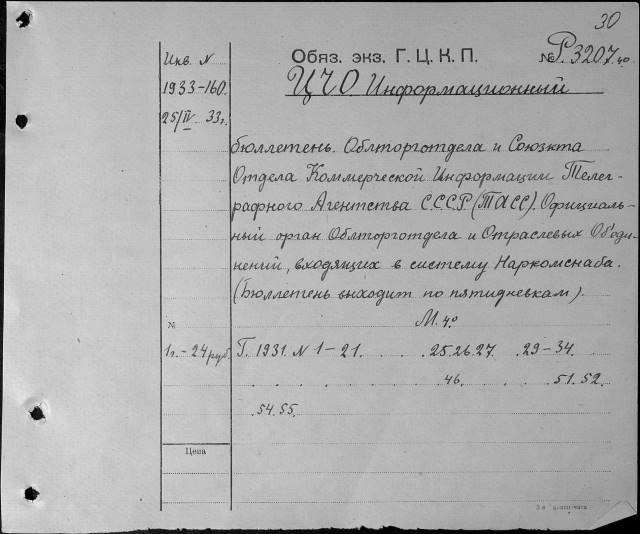 30
Инв. N
1933-160.
25/IV 33г.
Обяз. экз. Г. Ц. К. П. № Р3207.40
ЦЧО. Информационный
бюллетень. Облторготдела и Союзкта
Отдела Коммерческой Информации Телег-
рафного Агентства С.С.С.Р. (ТАСС). Официаль-
ный орган Облторготдела и Отраслевых Об'еди-
нений, входящих в систему Наркомснаба.
(Бюллетень выходит по пятидневкам).
М. 4º
№
1г.-24 руб. Г. 1931. N 1-21. . . 25.26.27. . 29-34.
. . . . . . 46. . . . 51.52.
54.55.
Цена